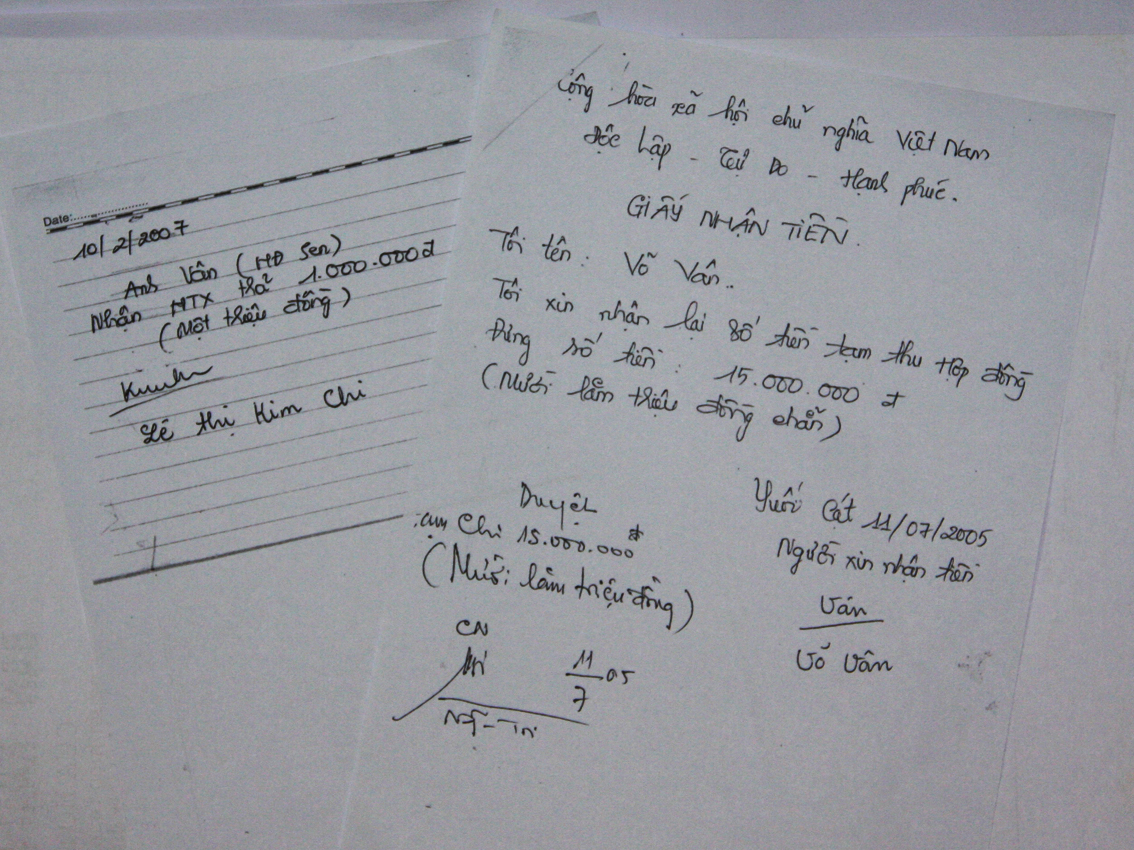 Date:
10/2/2007
Anh Vân (HĐ Sen)
Nhận HTX thả 1.000.000đ
(Một triệu đồng)
Lê thị Kim Chi
Cộng hòa xã hội chủ nghĩa Việt Nam
Độc lập - Tự Do - Hạnh phúc.
GIẤY NHẬN TIỀN.
Tôi tên: Võ Vân..
Tôi xin nhận lại số tiền tạm thu hợp đồng
Đúng số tiền: 15.000.000 đ
(Mười lăm triệu đồng chẵn)
Duyệt
Chi 15.000.000đ
(Mười lăm triệu đồng)
CN
11/7 05
Suối Cát 11/07/2005
Người xin nhận tiền
Vân
Võ Vân